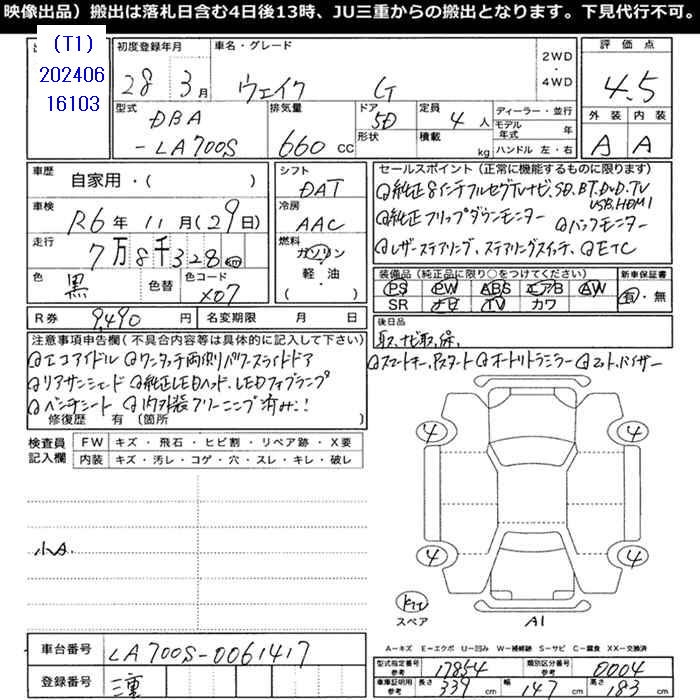 映像出品）搬出は落札日含む4日後13時、JU三重からの搬出となります。下見代行不可。
(T1)
202406
16103
初度登録年月
28年 3月
車名・グレード
ウェイク G
2WD
・
4WD
評価点
4.5
型式
DBA
-LA700S
排気量
660 CC
ドア
形状
5D
定員 4 人
積載 kg
ディーラー・並行
モデル年式 年
ハンドル 左・右
外装 内装
A A
車歴 自家用・( )
シフト
DAT
車検 R6年 11月(29日)
冷房
AAC
走行 7万8千328km
燃料
ガソリン
軽・油
( )
色 黒 色替
色コード
X07
R券 9,490 円
名変期限 月 日
セールスポイント（正常に機能するものに限ります）
純正8インチフルセグTVナビ、SD.BT.DVD.TV
USB.HDMI
純正フリップダウンモニター バックモニター
レザーステアリング、ステアリングスイッチ、ETC
装備品（純正品に限り○をつけてください）
新車保証書
PS PW ABS エアB AW
SR ナビ TV カワ
有・無
後日品
取、ナビ取、保、
スマートキー、Pスタート オートリトラミラー マット、バイザー
注意事項申告欄（不具合内容等は具体的に記入して下さい）
エコアイドル ワンタッチ両側パワースライドドア
リアサンシェード 純正LEDヘッド、LEDフォグランプ
ベンチシート 内外装クリーニング済み!!
修復歴 有（箇所
検査員
記入欄
FW キズ・飛石・ヒビ割・リペア跡・X要
内装 キズ・汚レ・コゲ・穴・スレ・キレ・破レ
小A
4 4
4 4
スペア
A1
A−キズ E−エクボ U−凹み W−補修跡 S−サビ C−腐食 XX−交換済
車台番号 LA700S-0061417
登録番号 三重
型式指定番号
参考
17854
類別区分番号
参考
0004
車庫証明用
参考
長さ 339 cm 幅 147 cm 高さ 83 cm